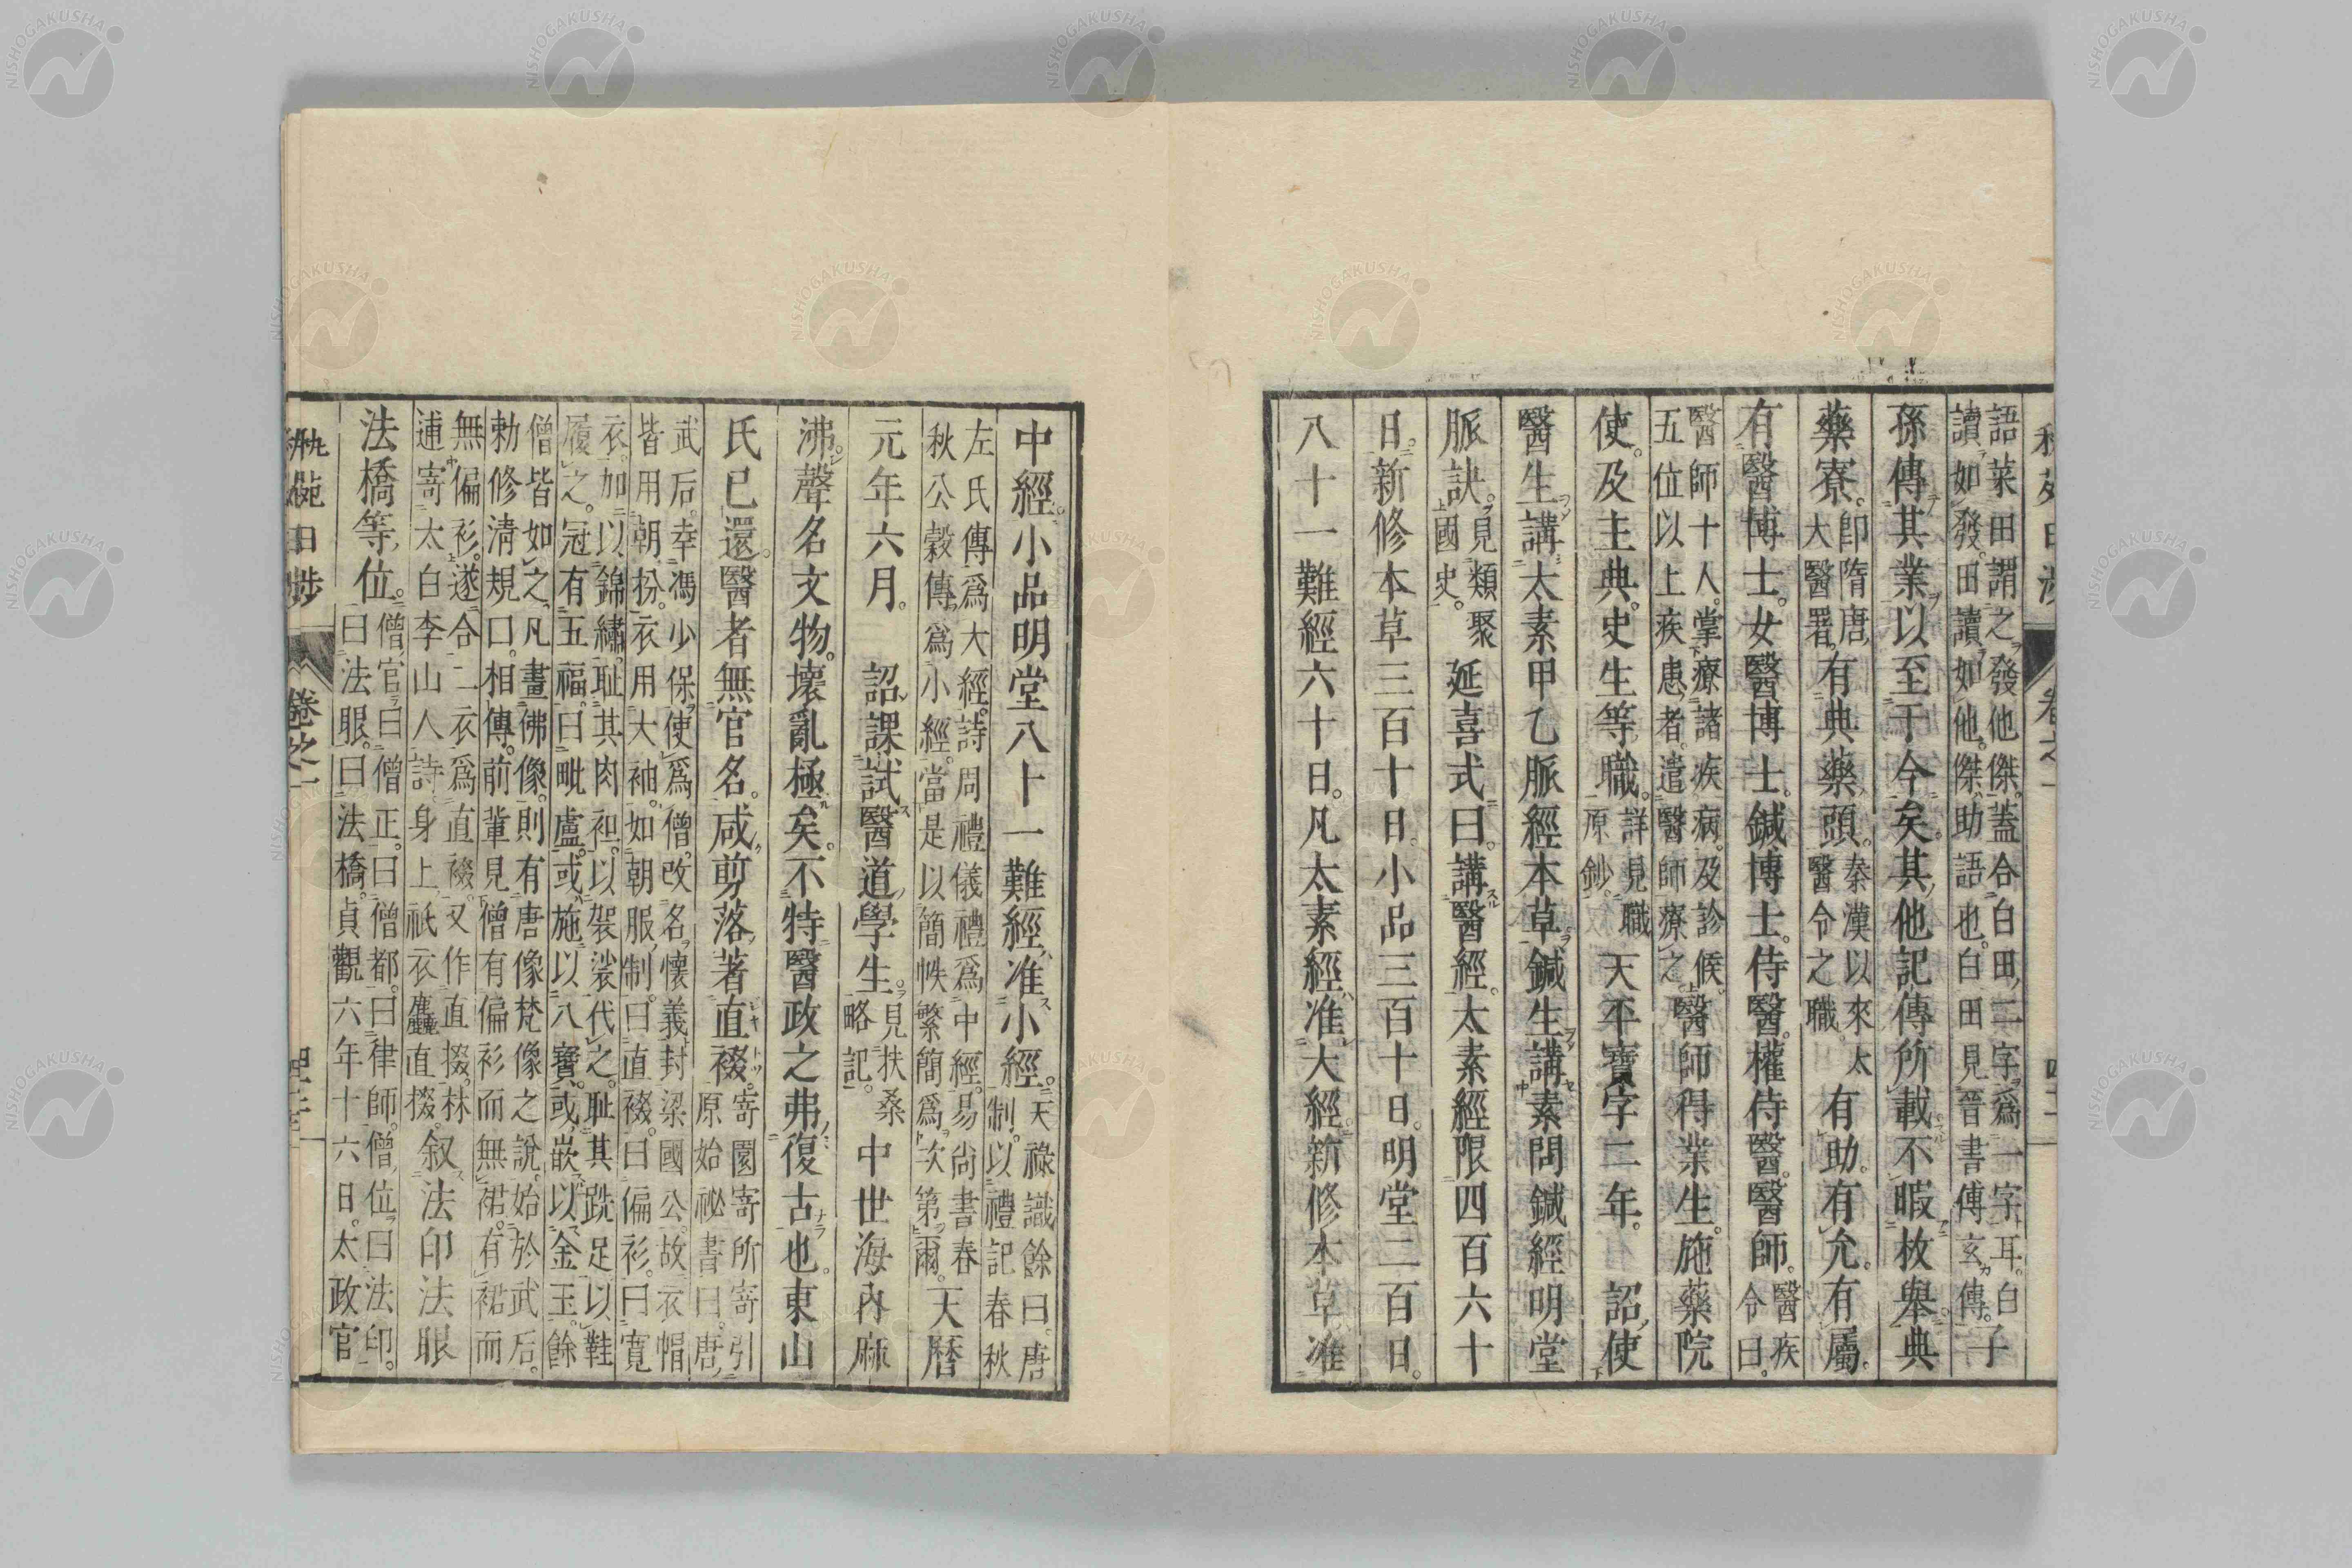 語菜田謂之發他傑。蓋合白田二字爲一字耳。白
讀如發。田讀如他。傑助語也。白田見晉書傅玄傳。子
孫傳其業以至于今矣。其他記傳所載不暇枚擧。典
藥寮。
卽隋唐
大醫署。
有典藥頭。
秦漢以來太
醫令之職。
有助。有允。有屬。
有醫博士。女醫博士。鍼博士。侍醫。權侍醫。醫師。
醫疾
令曰。
醫師十人掌療諸疾病。及診候。
五位以上疾患者。遣醫師療之。
醫師得業生。施藥院
使。及主典。史生等職。
詳見職
原鈔。
天平寶字二年。 詔使
醫生講太素甲乙脈經本草。鍼生講素問鍼經明堂
脈訣。
見類聚
國史。
延喜式曰。講醫經。太素經限四百六十
日。新修本草三百十日。小品三百十日。明堂二百日。
八十一難經六十日。凡太素經准大經。新修本草准
中經。小品明堂八十一難經准小經。
天祿識餘曰。唐
制。以禮記春秋
左氏傳爲大經。詩周禮儀禮爲中經。易尙書春
秋公穀傳爲小經。當是以簡帙繁簡爲次第爾。
天曆
元年六月。 詔課試醫道學生。
見扶桑
略記。
中世海內麻
沸。聲名文物。壞亂極矣。不特醫政之弗復古也。東山
氏已還。醫者無官名。咸剪落著直裰。
寄園寄所寄引
原始祕書曰。唐
武后。幸馮少保。使爲僧。改名懷義。封梁國公。故衣帽
皆用朝扮。衣用大袖。如朝服制。曰直裰。曰偏衫。曰寬
衣。加以錦繡。耻其肉袒。以袈裟代之。耻其跣足以鞋
履之。冠有五福。曰毗盧。或施以八寶。或嵌以金玉。餘
僧皆如之。凡畫佛像。則有唐像梵像之說。始於武后。
勅修淸規曰。相傳。前輩見僧有偏衫而無裙。有裙而
無偏衫。遂合二衣爲直裰。又作直掇。林
逋寄太白李山人詩。身上祇衣麤直掇。
叙法印法眼
法橋等位。
僧官曰僧正。曰僧都。曰律師。僧位曰法印。
曰法眼。曰法橋。貞觀六年十六日。太政官
卷之一